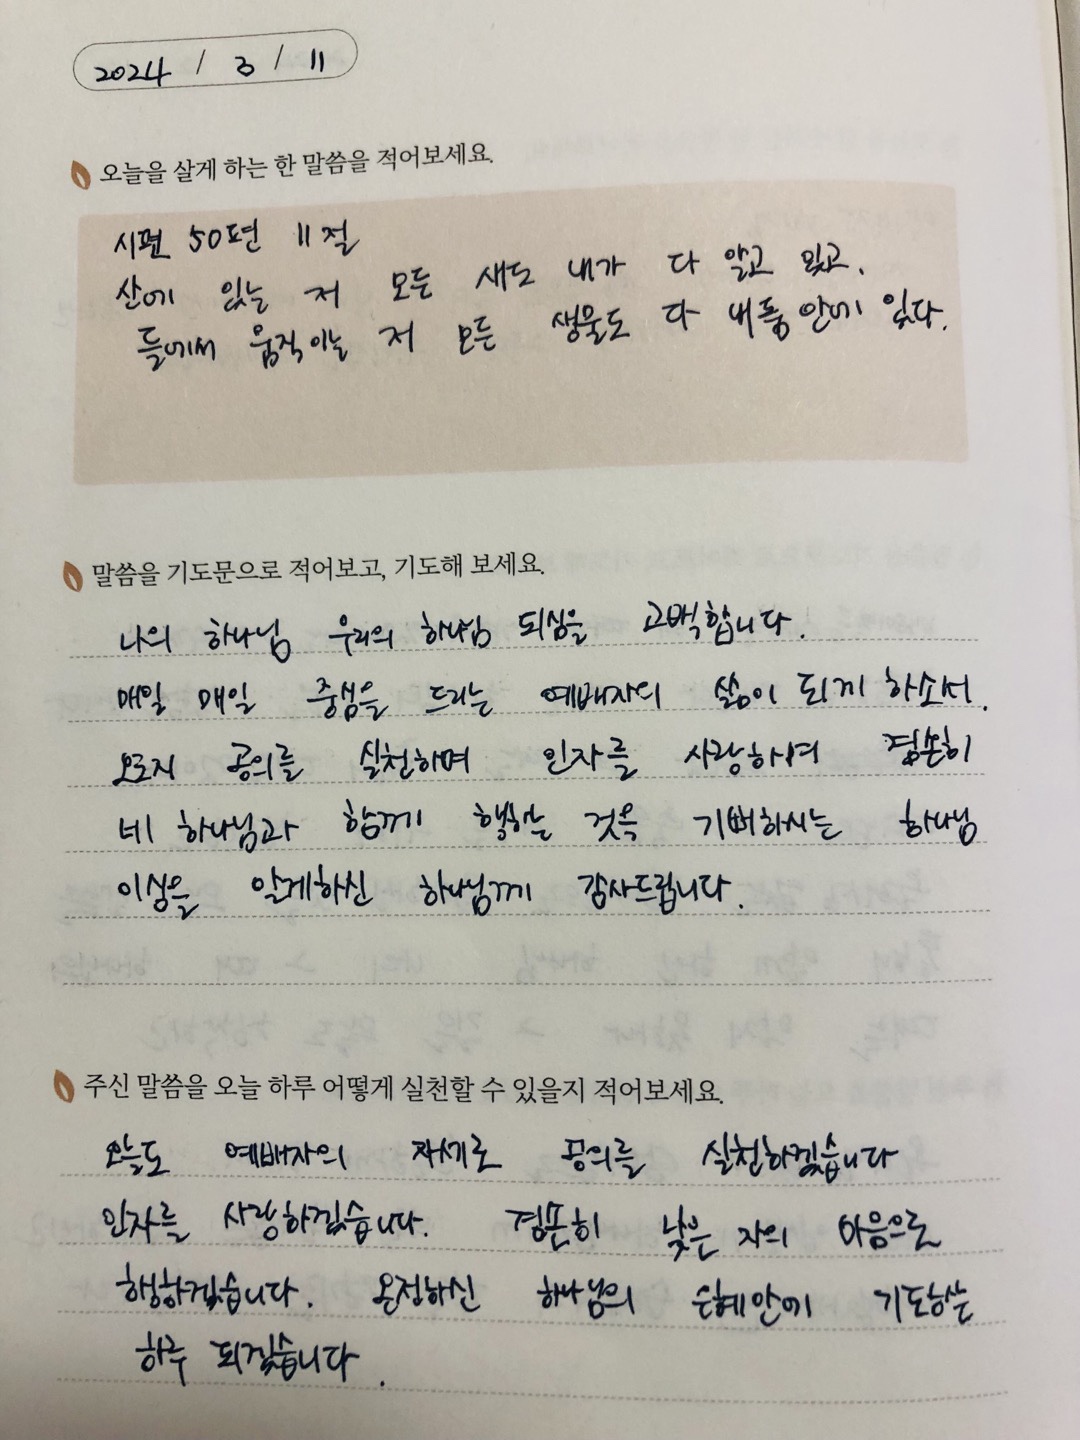 2024 / 3 / 11
오늘을 살게 하는 한 말씀을 적어보세요.
시편 50편 11절
산에 있는 저 모든 새도 내가 다 알고 있고,
들에서 움직이는 저 모든 생물도 다 내 품 안에 있다.
말씀을 기도문으로 적어보고, 기도해 보세요.
나의 하나님 우리의 하나님 되심을 고백합니다.
매일 매일 중심을 드리는 예배자의 삶이 되게 하소서.
오로지 공의를 실천하며 인자를 사랑하며 겸손히
네 하나님과 함께 행하는 것을 기뻐하시는 하나님
이심을 알게하신 하나님께 감사드립니다.
주신 말씀을 오늘 하루 어떻게 실천할 수 있을지 적어보세요.
오늘도 예배자의 자세로 공의를 실천하겠습니다
인자를 사랑하겠습니다. 겸손히 낮은 자의 마음으로
행하겠습니다. 온정하신 하나님의 은혜안에 기도하는
하루 되겠습니다.